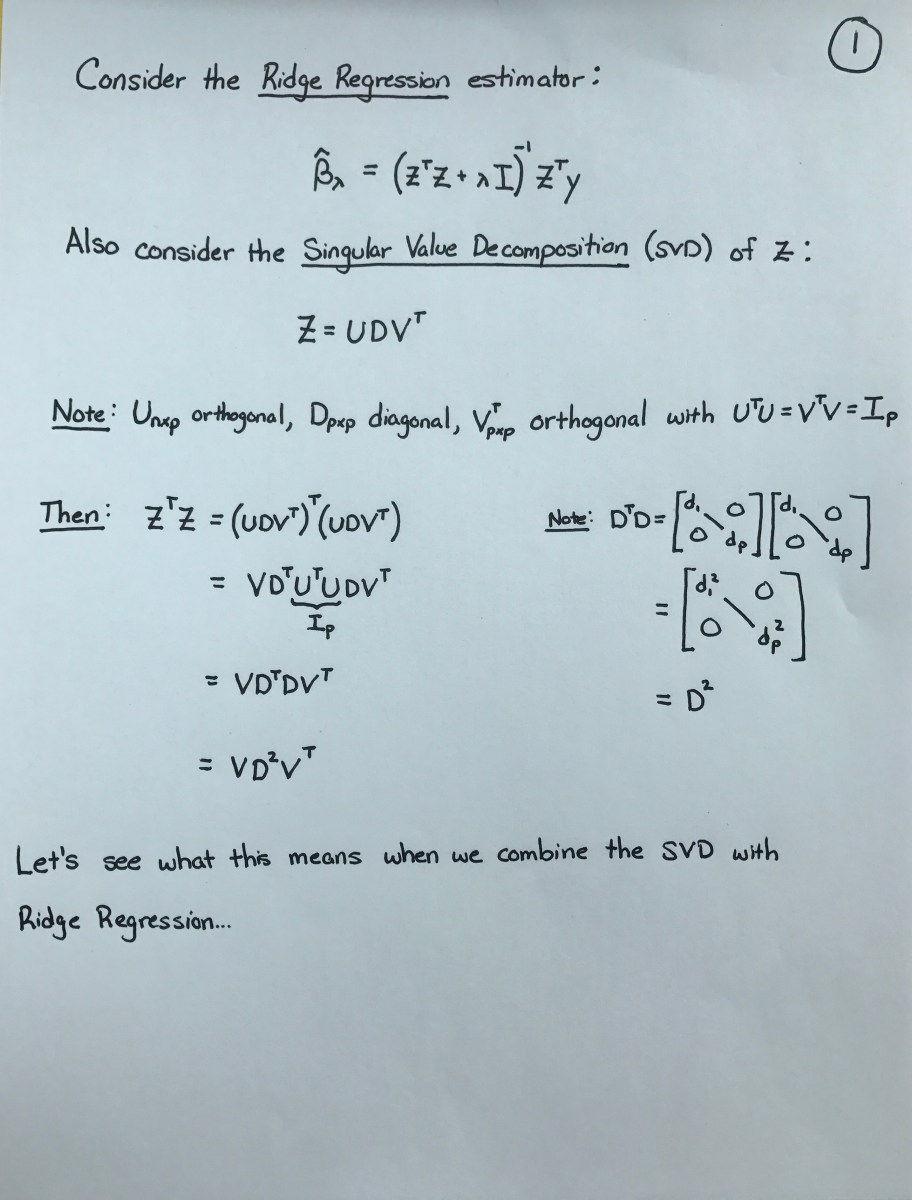 1
Consider the Ridge Regression estimator:
β̂_λ = (ZᵀZ + λI)⁻¹Zᵀy
Also consider the Singular Value Decomposition (SVD) of Z:
Z = UDVᵀ
Note: U_{n×p} orthogonal, D_{p×p} diagonal, Vᵀ_{p×p} orthogonal with UᵀU = VᵀV = I_p
Then: ZᵀZ = (UDVᵀ)ᵀ(UDVᵀ)
= VDᵀUᵀUDVᵀ
I_p
= VDᵀDVᵀ
= VD²Vᵀ
Note: DᵀD = [d₁ 0 0 d_p][d₁ 0 0 d_p]
= [d₁² 0 0 d_p²]
= D²
Let's see what this means when we combine the SVD with
Ridge Regression...